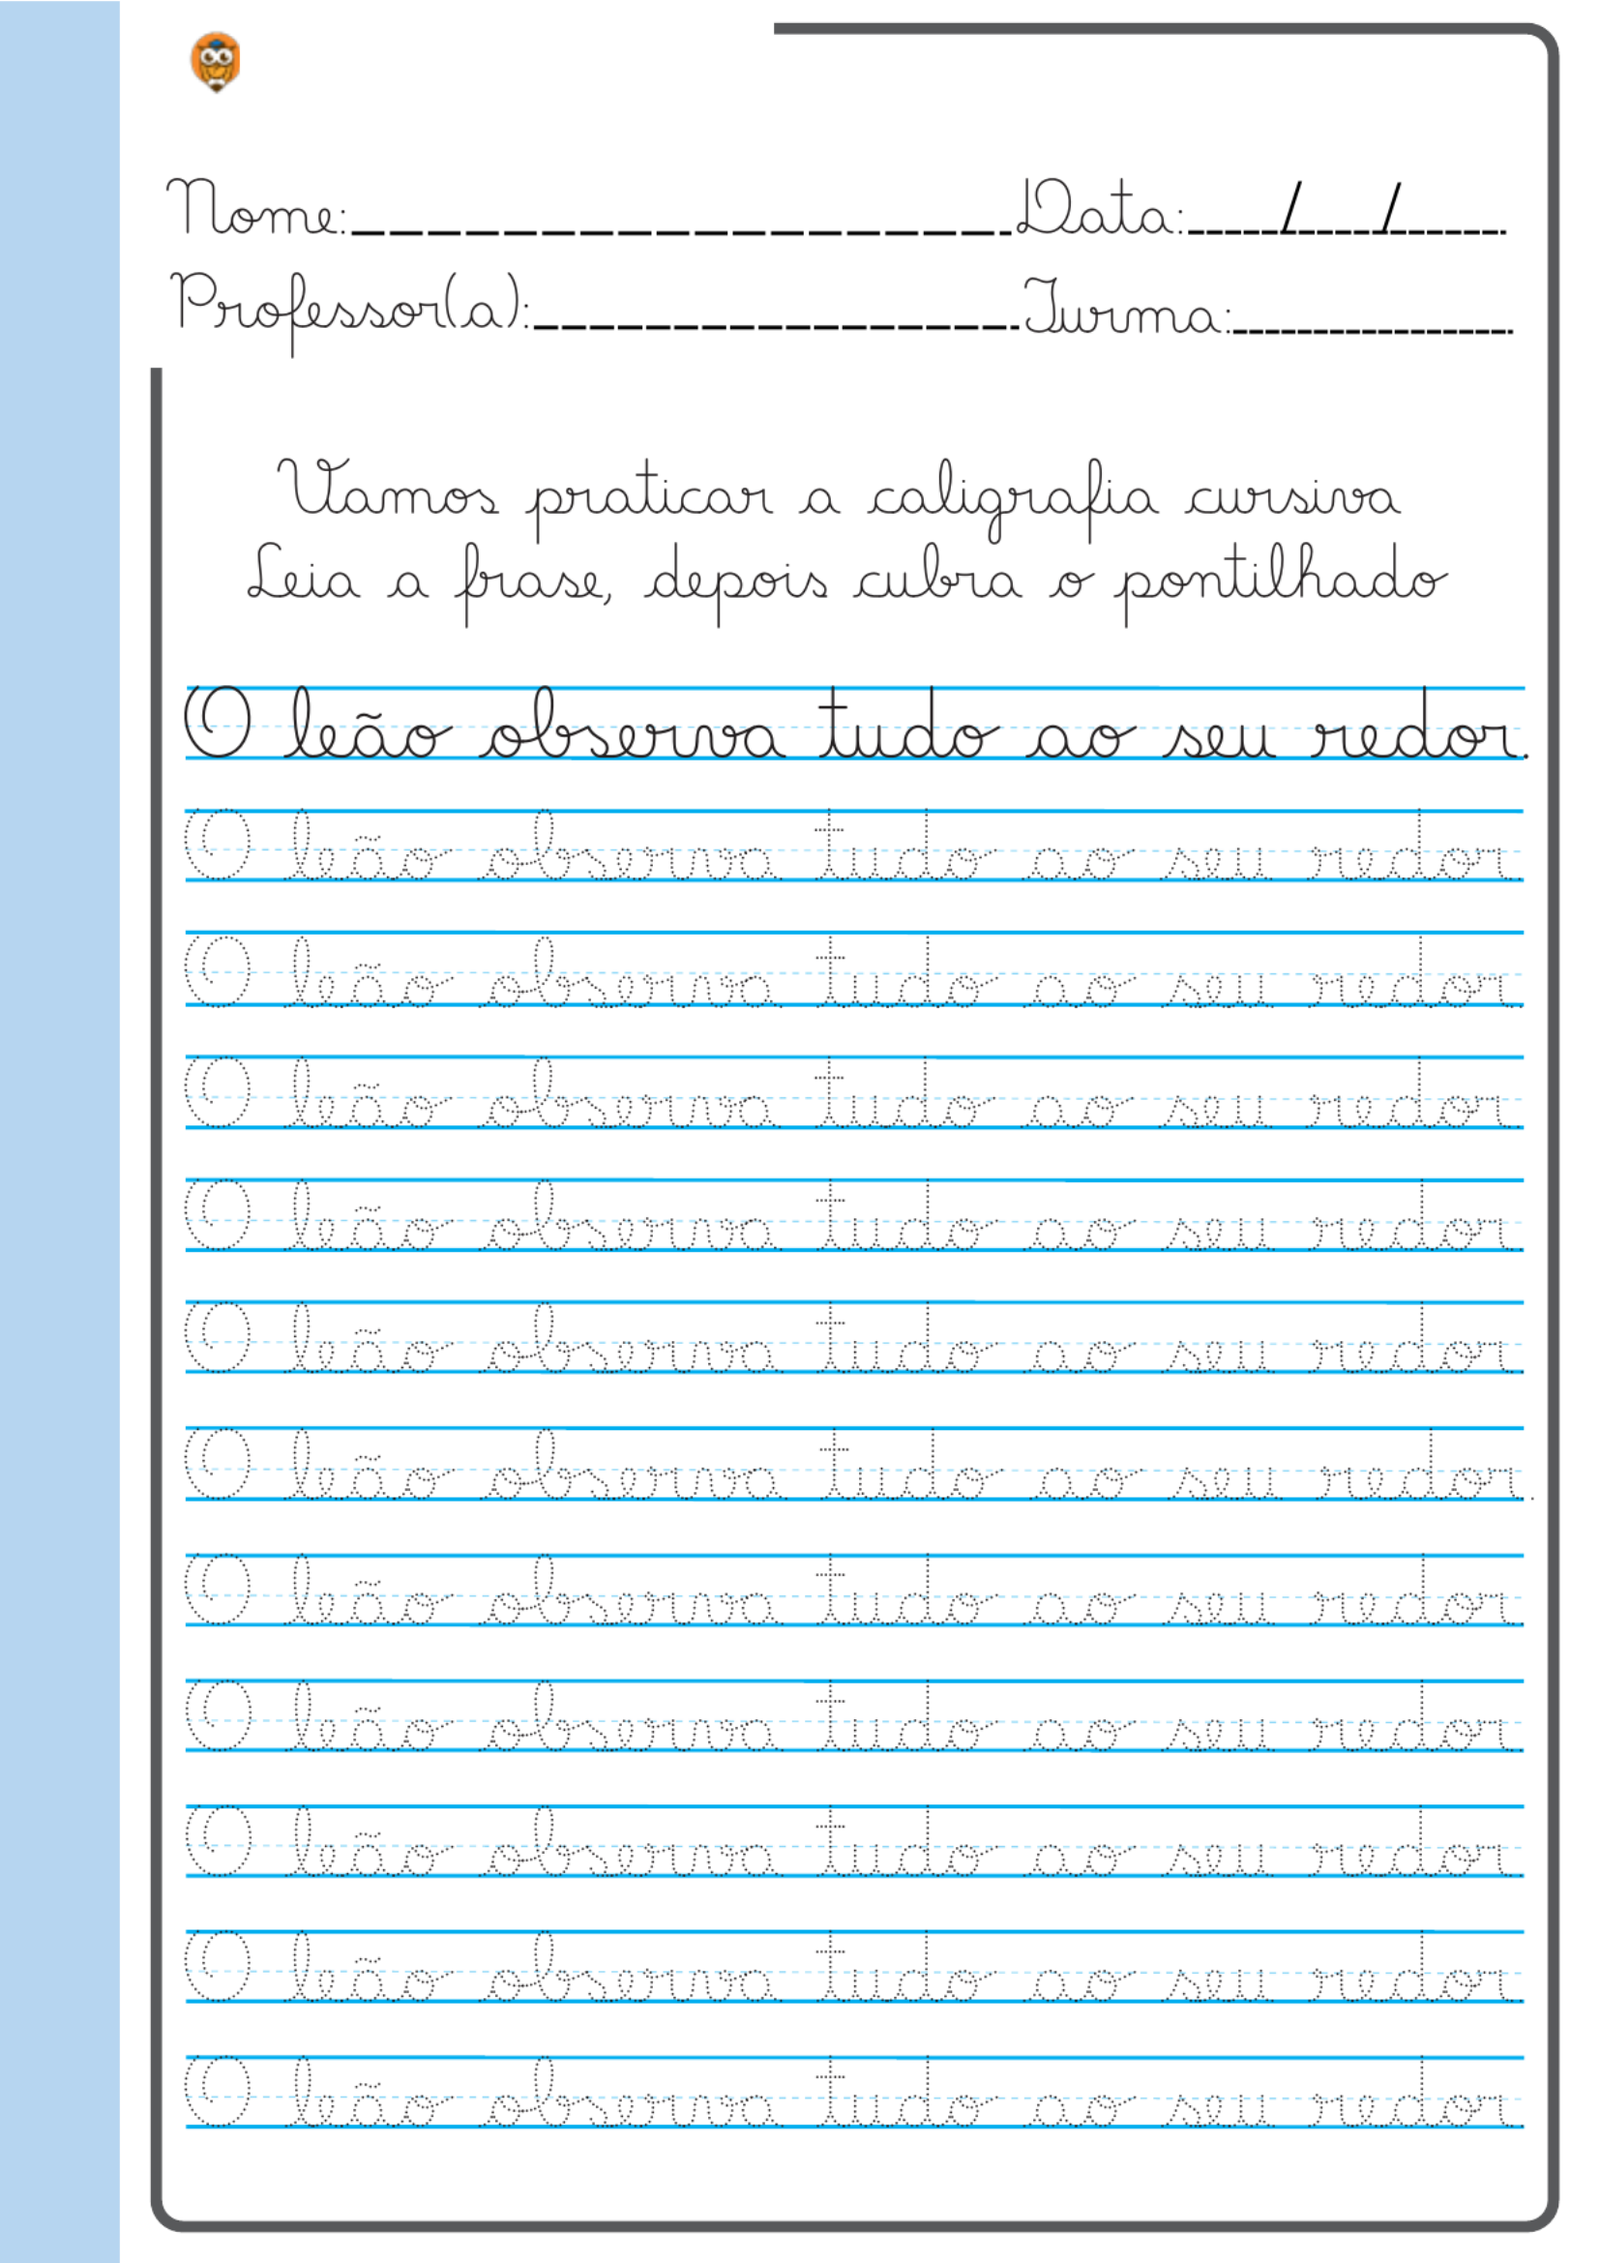 Nome: Data: / /
Professor(a): Turma:
Vamos praticar a caligrafia cursiva
Leia a frase, depois cubra o pontilhado
O leão observa tudo ao seu redor.
O leão observa tudo ao seu redor.
O leão observa tudo ao seu redor.
O leão observa tudo ao seu redor.
O leão observa tudo ao seu redor.
O leão observa tudo ao seu redor.
O leão observa tudo ao seu redor.
O leão observa tudo ao seu redor.
O leão observa tudo ao seu redor.
O leão observa tudo ao seu redor.
O leão observa tudo ao seu redor.
O leão observa tudo ao seu redor.